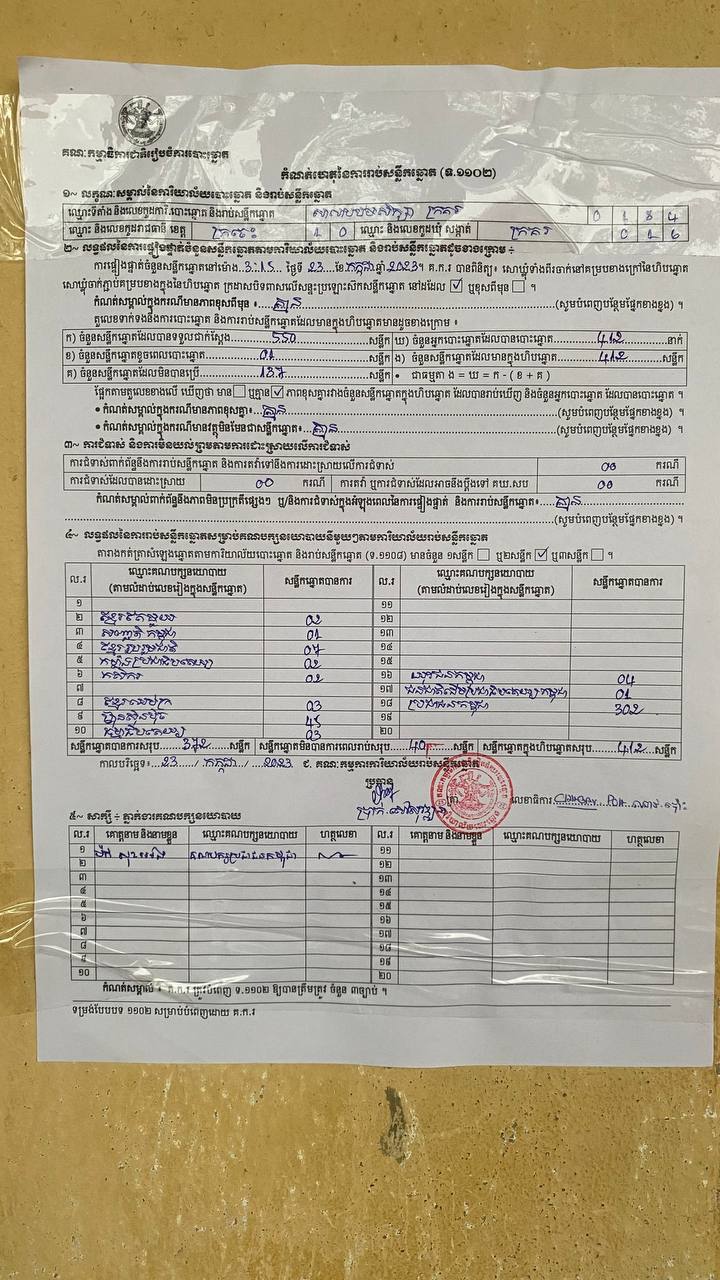 គណៈកម្មាធិការជាតិរៀបចំការបោះឆ្នោត
កំណត់ហេតុនៃការរាប់សន្លឹកឆ្នោត (ទ.១១០២)
១~ លក្ខណៈសម្គាល់នៃការិយាល័យបោះឆ្នោត និងរាប់សន្លឹកឆ្នោត
ឈ្មោះទីតាំង និងលេខកូដការិ.បោះឆ្នោត និងរាប់សន្លឹកឆ្នោត 0 1 3 4
ឈ្មោះ និងលេខកូដរាជធានី ខេត្ត ក្រចេះ 1 0 ឈ្មោះ និងលេខកូដឃុំ សង្កាត់ 0 1 6
២~ លទ្ធផលនៃការផ្ទៀងផ្ទាត់ចំនួនសន្លឹកឆ្នោតតាមការិយាល័យបោះឆ្នោត និងរាប់សន្លឹកឆ្នោតដូចខាងក្រោម ៖
ការផ្ទៀងផ្ទាត់ចំនួនសន្លឹកឆ្នោតនៅម៉ោង..3.15.. ថ្ងៃទី 23 ខែ កក្កដា ឆ្នាំ 2023។ គ.ក.រ បានពិនិត្យ៖ សោឃ្មុំទាំងពីរចាក់នៅគម្របខាងក្រៅនៃហិបឆ្នោត
សោឃ្មុំចាក់ភ្ជាប់គម្របខាងក្នុងនៃហិបឆ្នោត ក្រដាសបិទពាសលើសន្ទះប្រឡោះស៊កសន្លឹកឆ្នោត នៅដដែល ☑ ឬខុសពីមុន ☐ ។
កំណត់សម្គាល់ក្នុងករណីមានភាពខុសពីមុន ៖ គ្មាន (សូមបំពេញបន្ថែមផ្នែកខាងខ្នង) ។
តួលេខទាក់ទងនឹងការបោះឆ្នោត និងការរាប់សន្លឹកឆ្នោតដែលមានក្នុងហិបឆ្នោតមានដូចខាងក្រោម ៖
ក) ចំនួនសន្លឹកឆ្នោតដែលបានទទួលជាក់ស្តែង 550 សន្លឹក ឃ) ចំនួនអ្នកបោះឆ្នោតដែលបានបោះឆ្នោត 412 នាក់
ខ) ចំនួនសន្លឹកឆ្នោតខូចពេលបោះឆ្នោត 01 សន្លឹក ង) ចំនួនសន្លឹកឆ្នោតដែលមានក្នុងហិបឆ្នោត 412 សន្លឹក
គ) ចំនួនសន្លឹកឆ្នោតដែលមិនបានប្រើ 137 សន្លឹក • ជាធម្មតា ង = ឃ = ក - ( ខ + គ )
ផ្អែកតាមតួលេខខាងលើ ឃើញថា មាន ☐ ឬគ្មាន ☑ ភាពខុសគ្នារវាងចំនួនសន្លឹកឆ្នោតក្នុងហិបឆ្នោត ដែលបានរាប់ឃើញ និងចំនួនអ្នកបោះឆ្នោត ដែលបានបោះឆ្នោត ។
• កំណត់សម្គាល់ក្នុងករណីមានភាពខុសគ្នា៖ គ្មាន (សូមបំពេញបន្ថែមផ្នែកខាងខ្នង) ។
• កំណត់សម្គាល់ក្នុងករណីមានវត្ថុមិនមែនជាសន្លឹកឆ្នោត៖ គ្មាន (សូមបំពេញបន្ថែមផ្នែកខាងខ្នង) ។
៣~ ការជំទាស់ និងការមិនយល់ព្រមតាមការដោះស្រាយលើការជំទាស់
ការជំទាស់ពាក់ព័ន្ធនឹងការរាប់សន្លឹកឆ្នោត និងការតវ៉ាទៅនឹងការដោះស្រាយលើការជំទាស់ 00 ករណី
ការជំទាស់ដែលបានដោះស្រាយ 00 ករណី ការតវ៉ា ឬការជំទាស់ដែលអាចនឹងប្តឹងទៅ គឃ.សប 00 ករណី
កំណត់សម្គាល់ពាក់ព័ន្ធនឹងភាពមិនប្រក្រតីផ្សេងៗ ឬ/និងការជំទាស់ក្នុងអំឡុងពេលនៃការផ្ទៀងផ្ទាត់ និងការរាប់សន្លឹកឆ្នោត៖ គ្មាន
(សូមបំពេញបន្ថែមផ្នែកខាងខ្នង) ។
៤~ លទ្ធផលនៃការរាប់សន្លឹកឆ្នោតសម្រាប់គណបក្សនយោបាយនីមួយៗតាមការិយាល័យរាប់សន្លឹកឆ្នោត
តារាងកត់ត្រាសំឡេងឆ្នោតតាមការិយាល័យបោះឆ្នោត និងរាប់សន្លឹកឆ្នោត (ទ.១១០៨) មានចំនួន ១សន្លឹក ☐ ឬ២សន្លឹក ☑ ឬ៣សន្លឹក ☐ ។
ល.រ ឈ្មោះគណបក្សនយោបាយ (តាមលំដាប់លេខរៀងក្នុងសន្លឹកឆ្នោត) សន្លឹកឆ្នោតបានការ ល.រ ឈ្មោះគណបក្សនយោបាយ (តាមលំដាប់លេខរៀងក្នុងសន្លឹកឆ្នោត) សន្លឹកឆ្នោតបានការ
១ ១១
២ 02 ១២
៣ 01 ១៣
៤ 07 ១៤
៥ 02 ១៥
៦ កសិករ 02 ១៦ 04
៧ ១៧ 01
៨ 03 ១៨ ប្រជាជនកម្ពុជា 302
៩ ហ៊្វុនស៊ិនប៉ិច 45 ១៩
១០ 03 ២០
សន្លឹកឆ្នោតបានការសរុប 372 សន្លឹក សន្លឹកឆ្នោតមិនបានការពេលរាប់សរុប 40 សន្លឹក សន្លឹកឆ្នោតក្នុងហិបឆ្នោតសរុប 412 សន្លឹក
កាលបរិច្ឆេទ៖ 23 / កក្កដា / 2023 ជ. គណៈកម្មការការិយាល័យរាប់សន្លឹកឆ្នោត
ប្រធាន
ត្រា លេខាធិការ
៥~ សាក្សី ៖ ភ្នាក់ងារគណបក្សនយោបាយ
ល.រ គោត្តនាម និងនាមខ្លួន ឈ្មោះគណបក្សនយោបាយ ហត្ថលេខា ល.រ គោត្តនាម និងនាមខ្លួន ឈ្មោះគណបក្សនយោបាយ ហត្ថលេខា
១ គណបក្សប្រជាជនកម្ពុជា ១១
២ ១២
៣ ១៣
៤ ១៤
៥ ១៥
៦ ១៦
៧ ១៧
៨ ១៨
៩ ១៩
១០ ២០
កំណត់សម្គាល់ ៖ គ.ក.រ ត្រូវបំពេញ ទ.១១០២ ឱ្យបានត្រឹមត្រូវ ចំនួន ៣ច្បាប់ ។
ទម្រង់បែបបទ ១១០២ សម្រាប់បំពេញដោយ គ.ក.រ